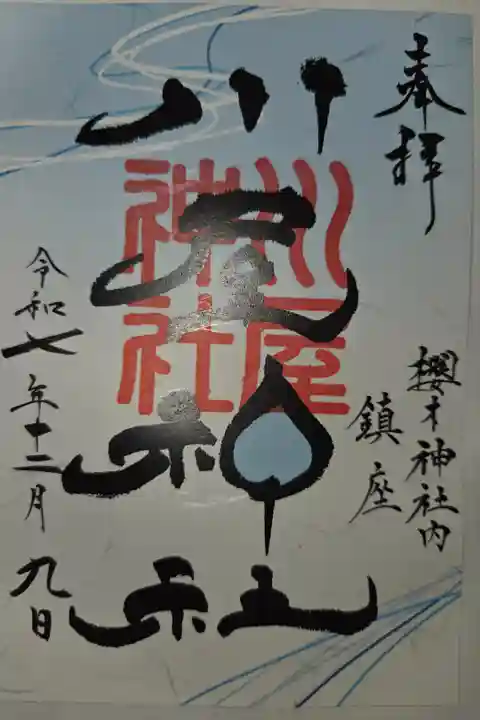 奉拝
櫻木神社内
鎮座
川屋神社
川屋神社
令和七年十二月九日